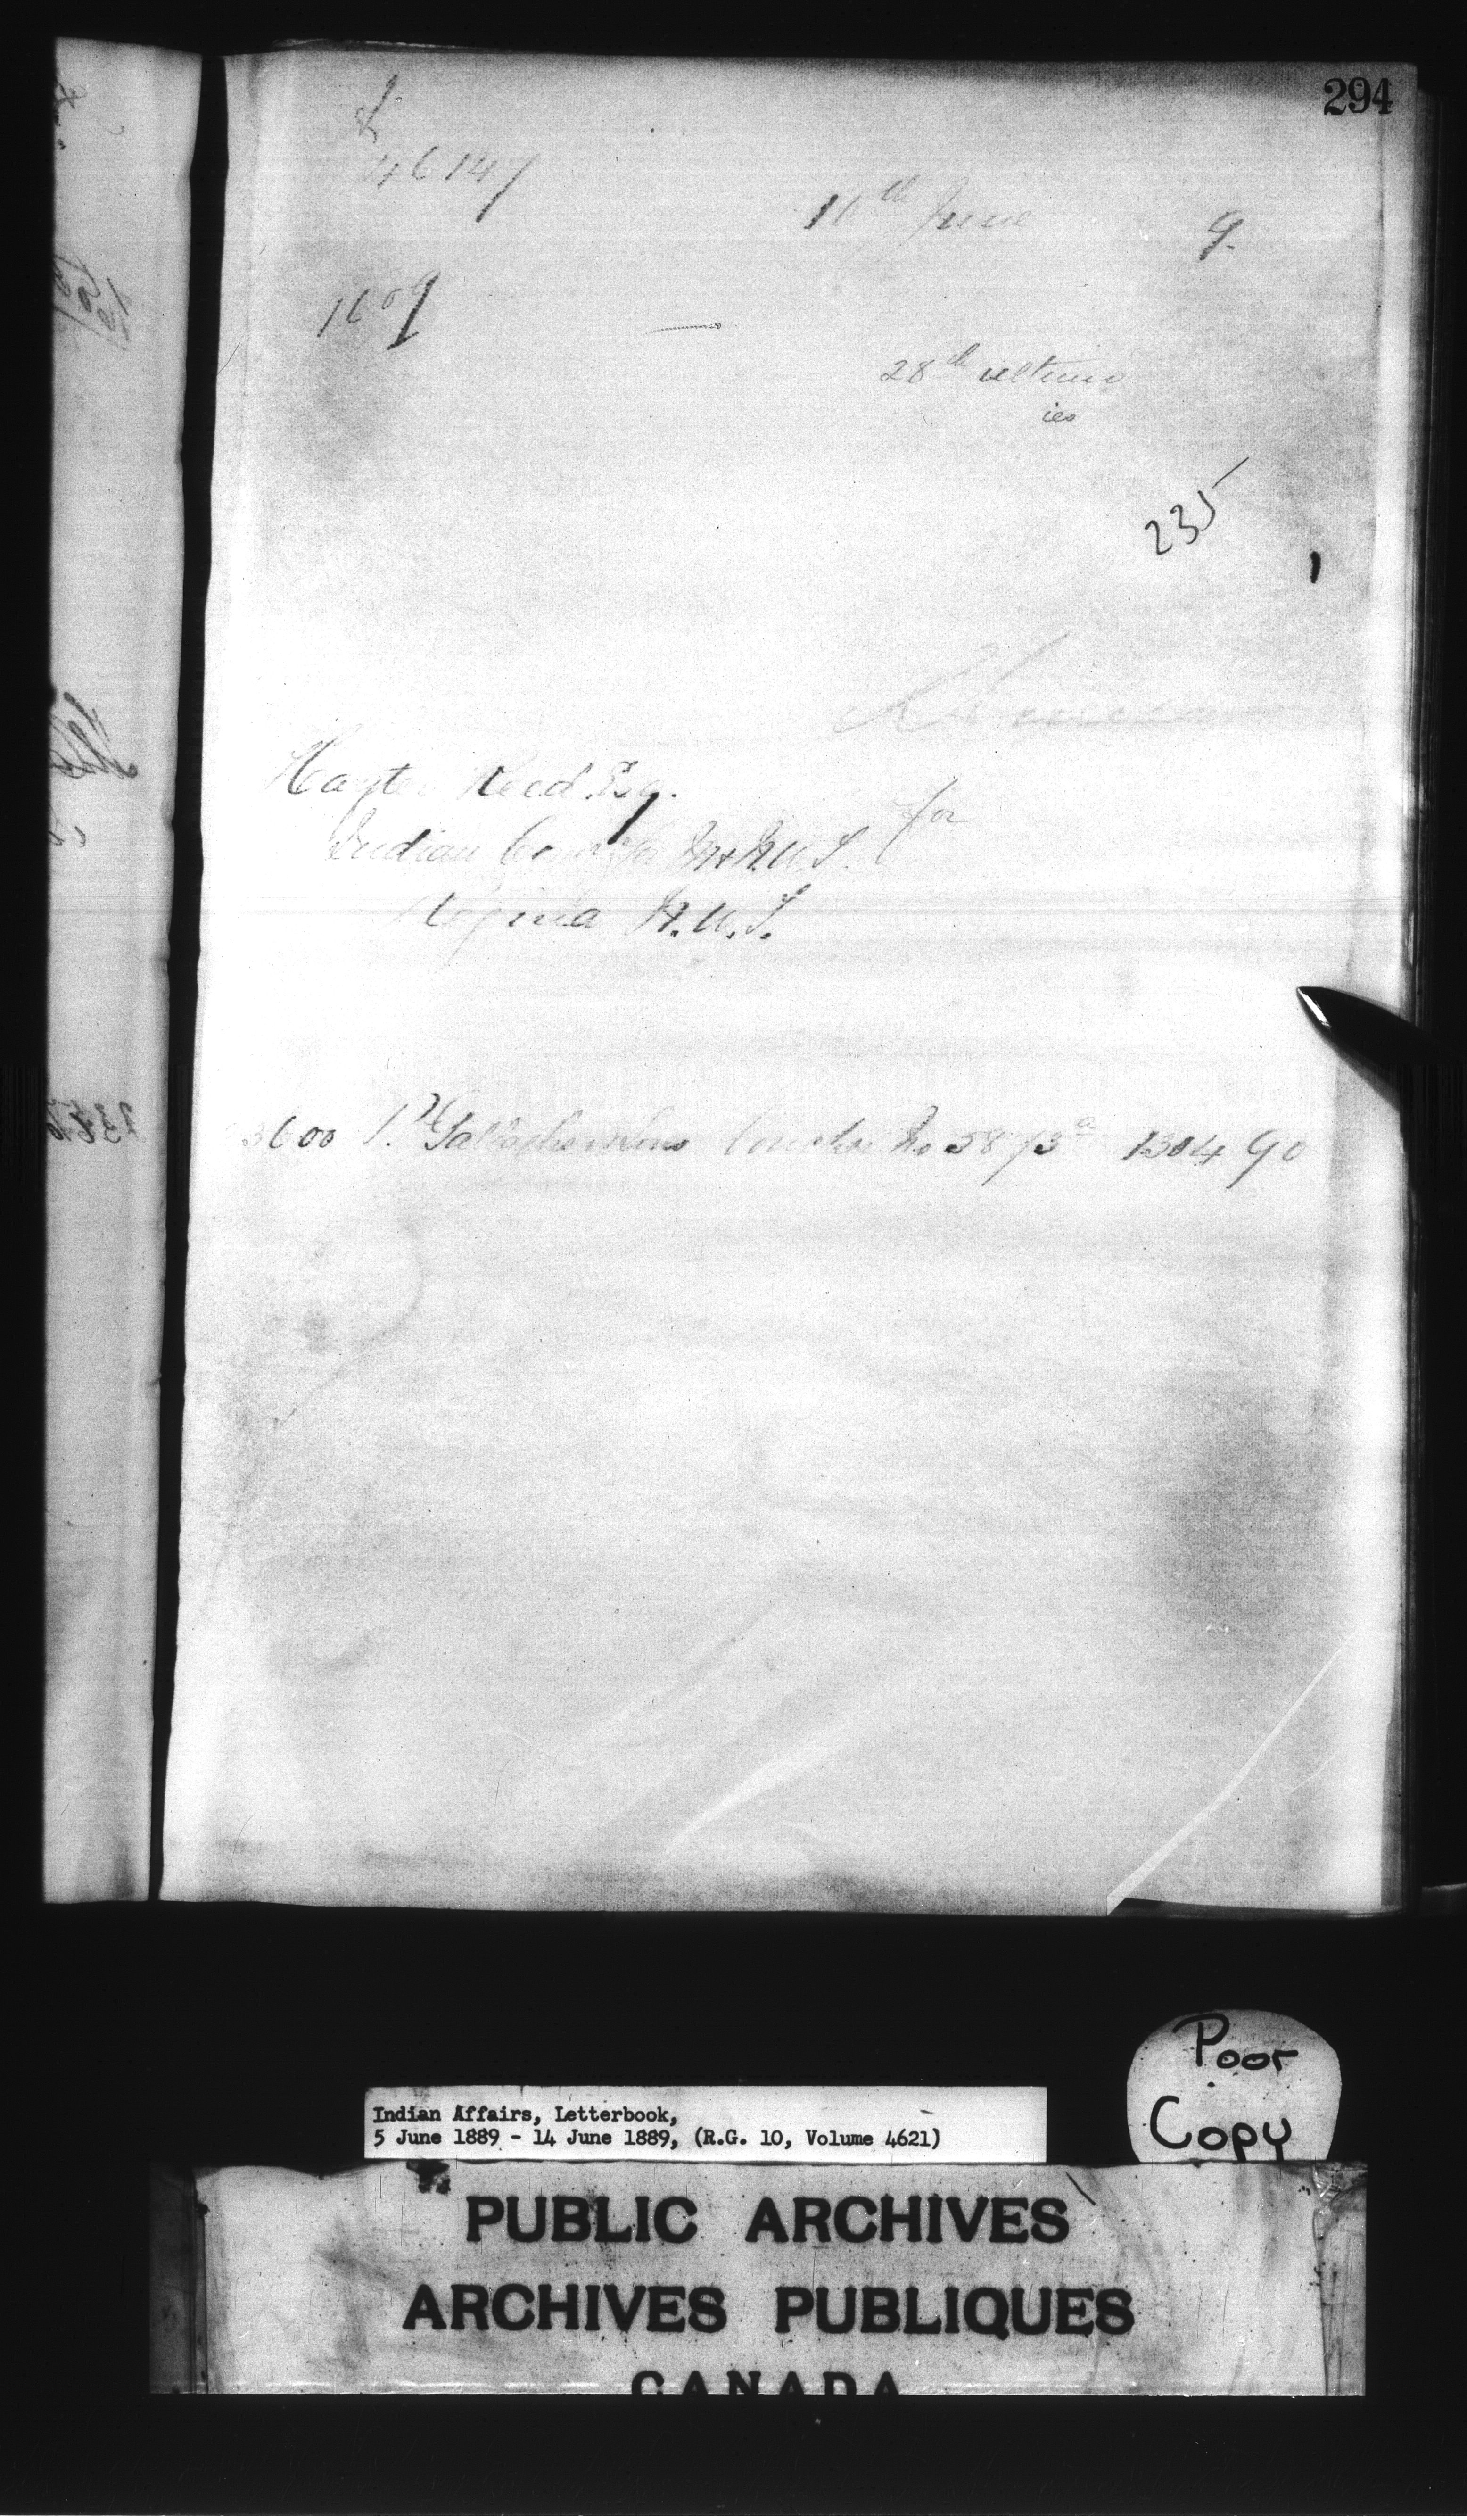 294
L
46147
10th June 9.
1609
28th ultimo
ies
235
Hayter Reed Esq.
for
Indian Com for M & N.W.T.
Regina N.W.T.
3600 P. Gallagher & Sons Voucher No 5873a 1304 90
Poor
Copy
Indian Affairs, Letterbook,
5 June 1889 - 14 June 1889, (R.G. 10, Volume 4621)
PUBLIC ARCHIVES
ARCHIVES PUBLIQUES
CANADA